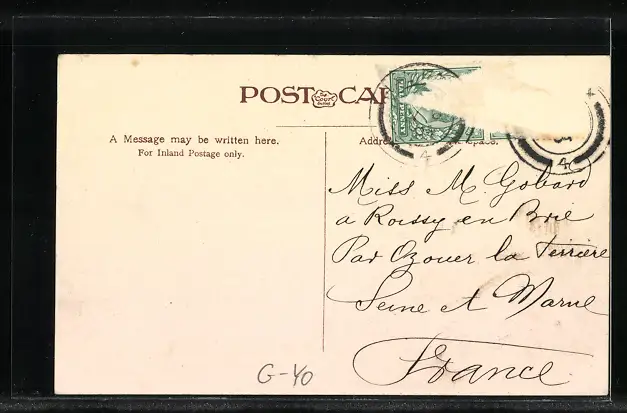 POST CAR
A Message may be written here.
For Inland Postage only.
PENNY
4
4
Miss M. Gobard
a Roissy en Brie
Par Ozouer la Ferrière
Seine et Marne
France
G-40